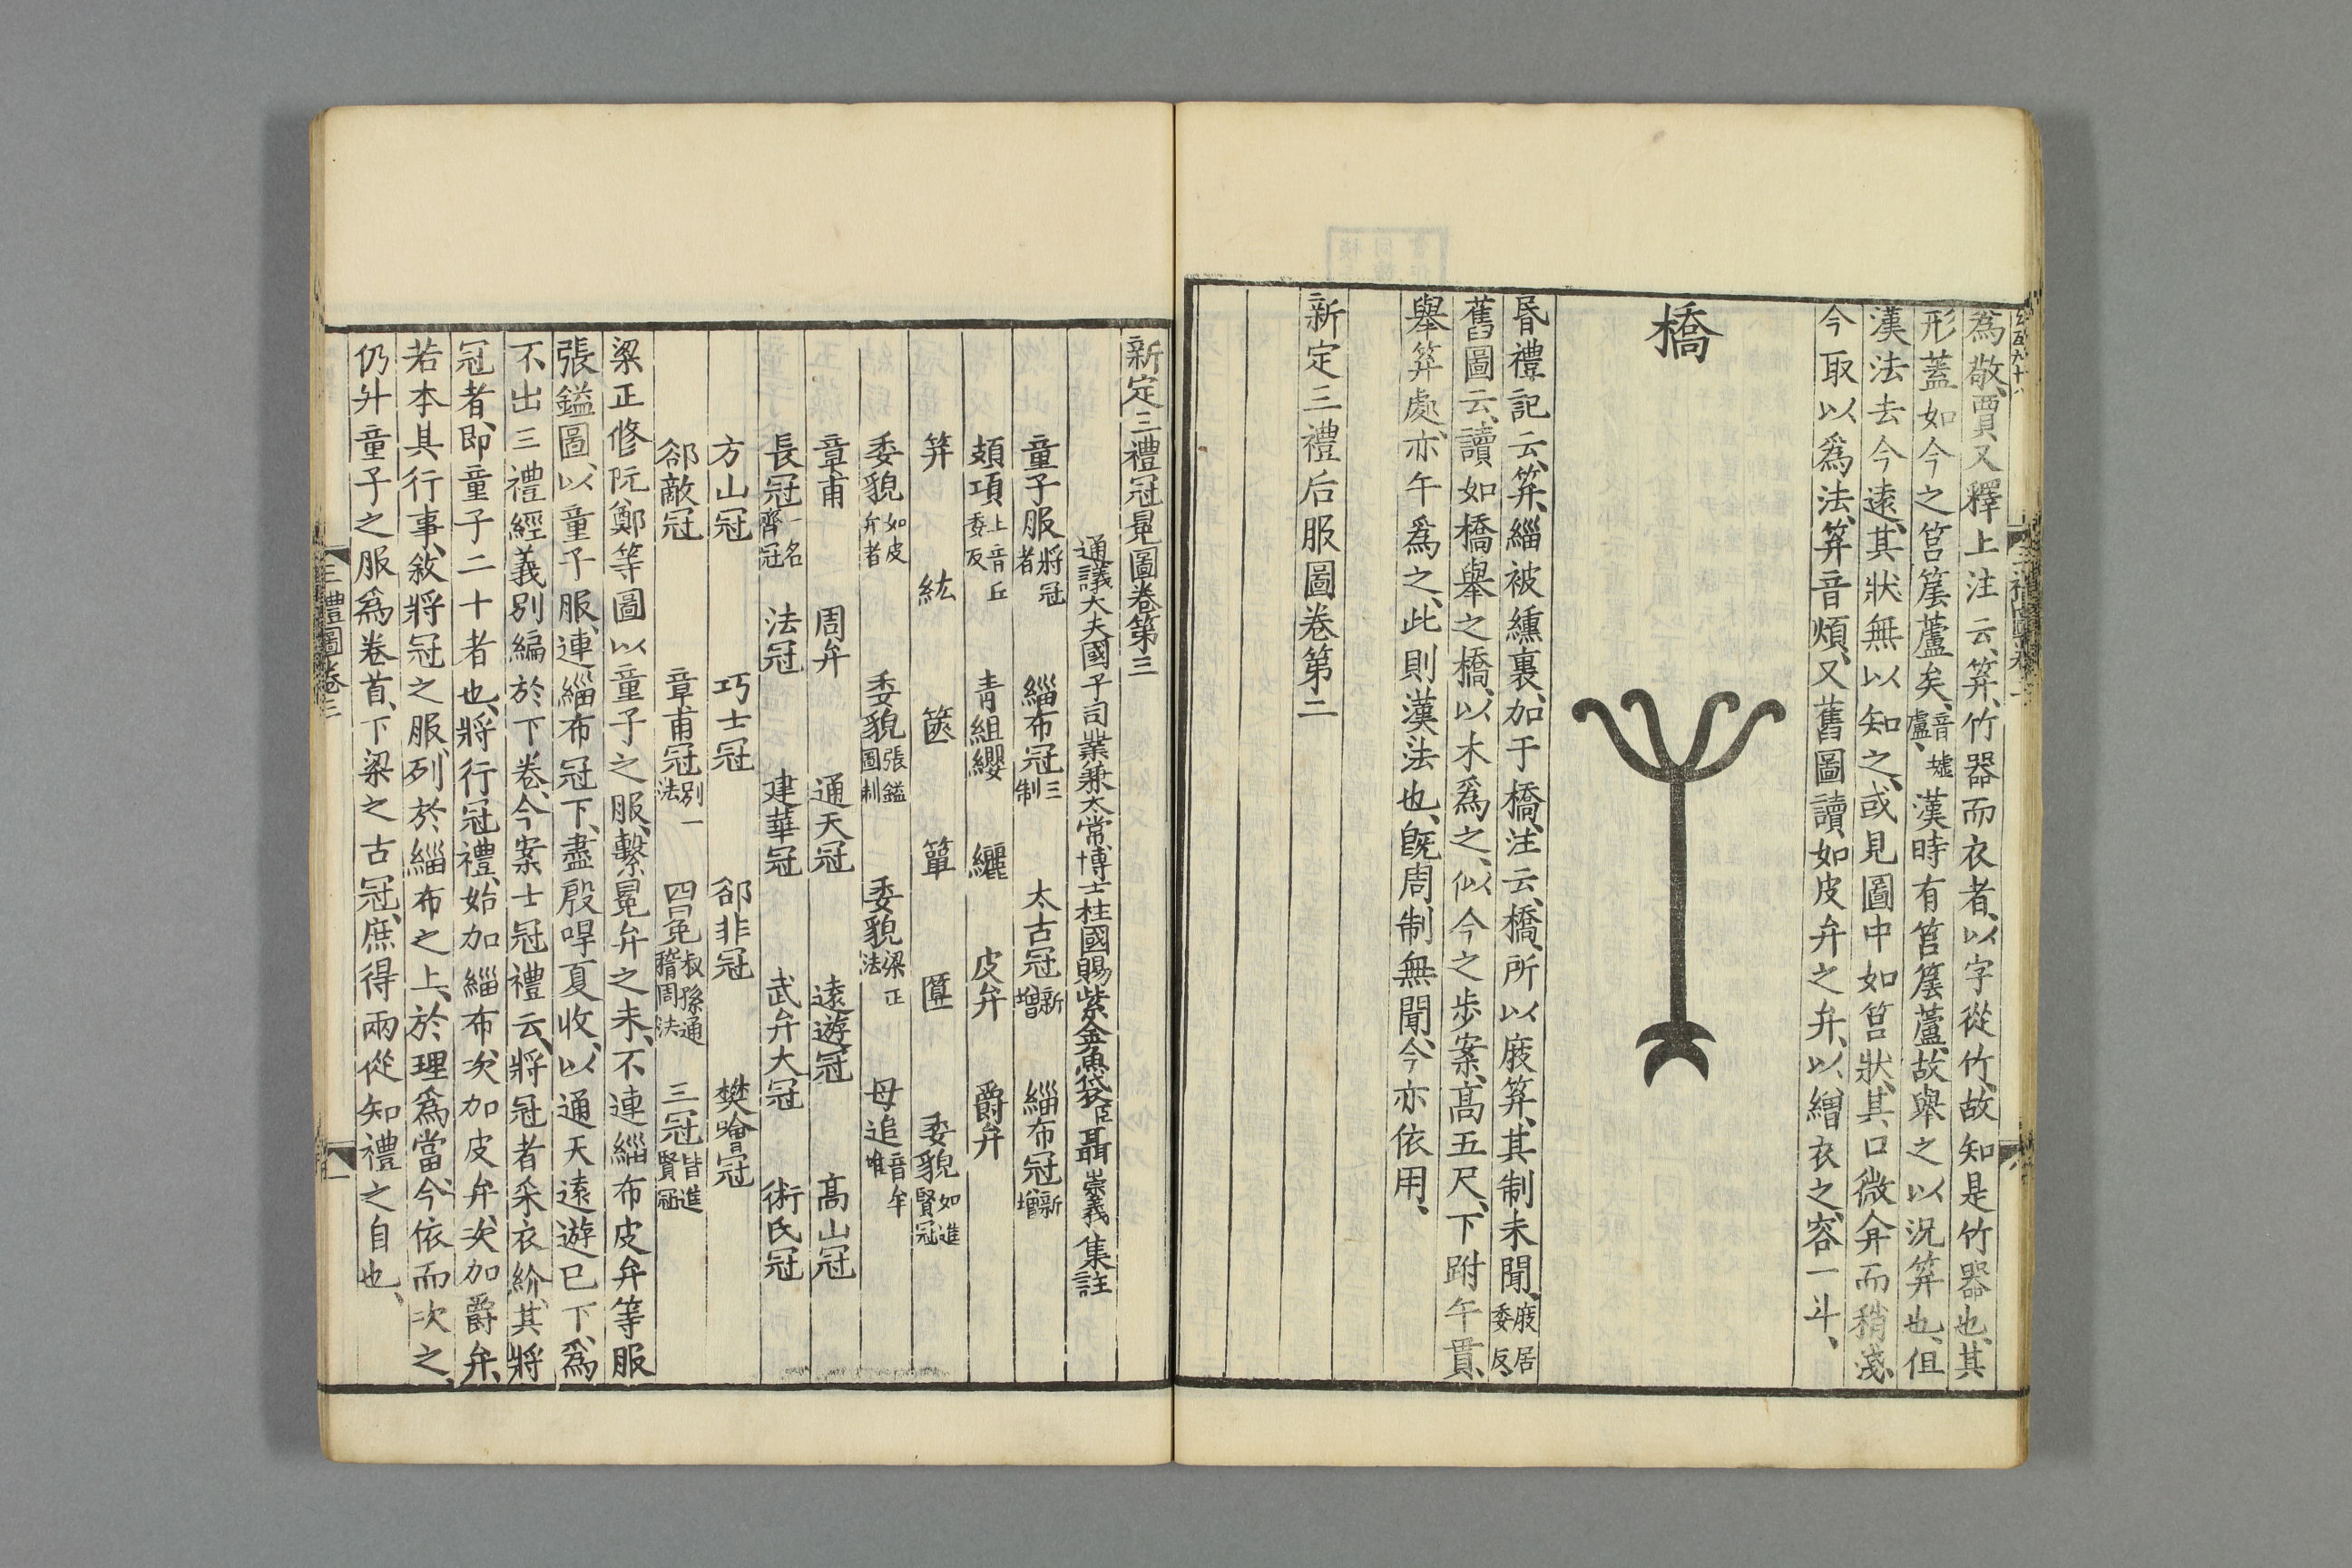 為敬、賈又釋上注云、筓、竹器而衣者、以字從竹、故知是竹器也、其
形蓋如今之筥䇲蘆矣、音墟盧、漢時有筥䇲蘆、故舉之以況筓也、但
漢法去今遠、其狀無以知之、或見圖中如筥狀、其口微弇而稍淺、
今取以為法、筓音煩、又舊圖讀如皮弁之弁、以繒衣之、容一斗、
橋
昬禮記云、筓、緇被纁裏、加于橋、注云、橋、所以庪筓、其制未聞、庪居委反、
舊圖云、讀如橋舉之橋、以木為之、似今之步案、高五尺、下跗午貫、
舉筓處、亦午為之、此則漢法也、旣周制無聞、今亦依用、
新定三禮后服圖卷第二
新定三禮冠冕圖卷第三
通議大夫國子司業兼太常博士柱國賜紫金魚袋臣聶崇義集註
童子服將冠者 緇布冠三制 太古冠新增 緇布冠新增
頍項上音丘委反 青組纓 纚 皮弁 爵弁
筓 紘 篋 簞 匴 委貌如進賢冠
委貌如皮弁者 委貌張鎰圖制 委貌梁正法 母追音牟唯
章甫 周弁 通天冠 遠遊冠 高山冠
長冠一名齊冠 法冠 建華冠 武弁大冠 術氏冠
方山冠 巧士冠 郤非冠 樊噲冠
郤敵冠 章甫冠別一法 四冕叔孫通稽周法 三冠皆進賢冠
梁正修阮鄭等圖以童子之服、繫冕弁之末、不連緇布皮弁等服
張鎰圖、以童子服、連緇布冠下、盡殷哻夏收、以通天遠遊已下、為
不出三禮經義別編於下卷、今案士冠禮云、將冠者采衣紒、其將
冠者、即童子二十者也、將行冠禮、始加緇布、次加皮弁、次加爵弁、
若本其行事、敘將冠之服、列於緇布之上、於理為當、今依而次之、
仍升童子之服為卷首、下梁之古冠、庶得兩從知禮之自也、
三禮圖卷三
一